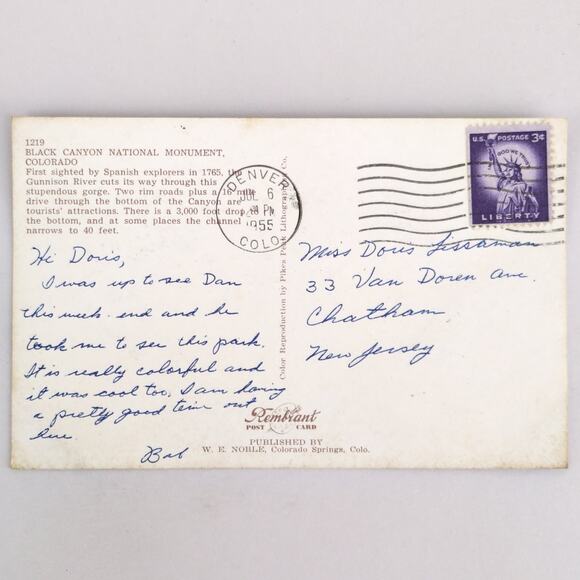 1219
BLACK CANYON NATIONAL MONUMENT,
COLORADO
First sighted by Spanish explorers in 1765, the
Gunnison River cuts its way through this
stupendous gorge. Two rim roads plus a 16 mile
drive through the bottom of the Canyon are
tourists' attractions. There is a 3,000 foot drop to
the bottom, and at some places the channel
narrows to 40 feet.
Hi Doris,
I was up to see Dan
this week-end and he
took me to see this park.
It is really colorful and
it was cool too. I am having
a pretty good time out
here.
Bob
Color Reproduction by Pikes Peak Lithographing Co.
DENVER
JUL 6
PM
1955
COLO.
U.S. POSTAGE 3¢
IN GOD WE TRUST
LIBERTY
Miss Doris Lissaman
33 Van Doren Ave.
Chatham
New Jersey
Rembrant
POST CARD
PUBLISHED BY
W. E. NOBLE, Colorado Springs, Colo.